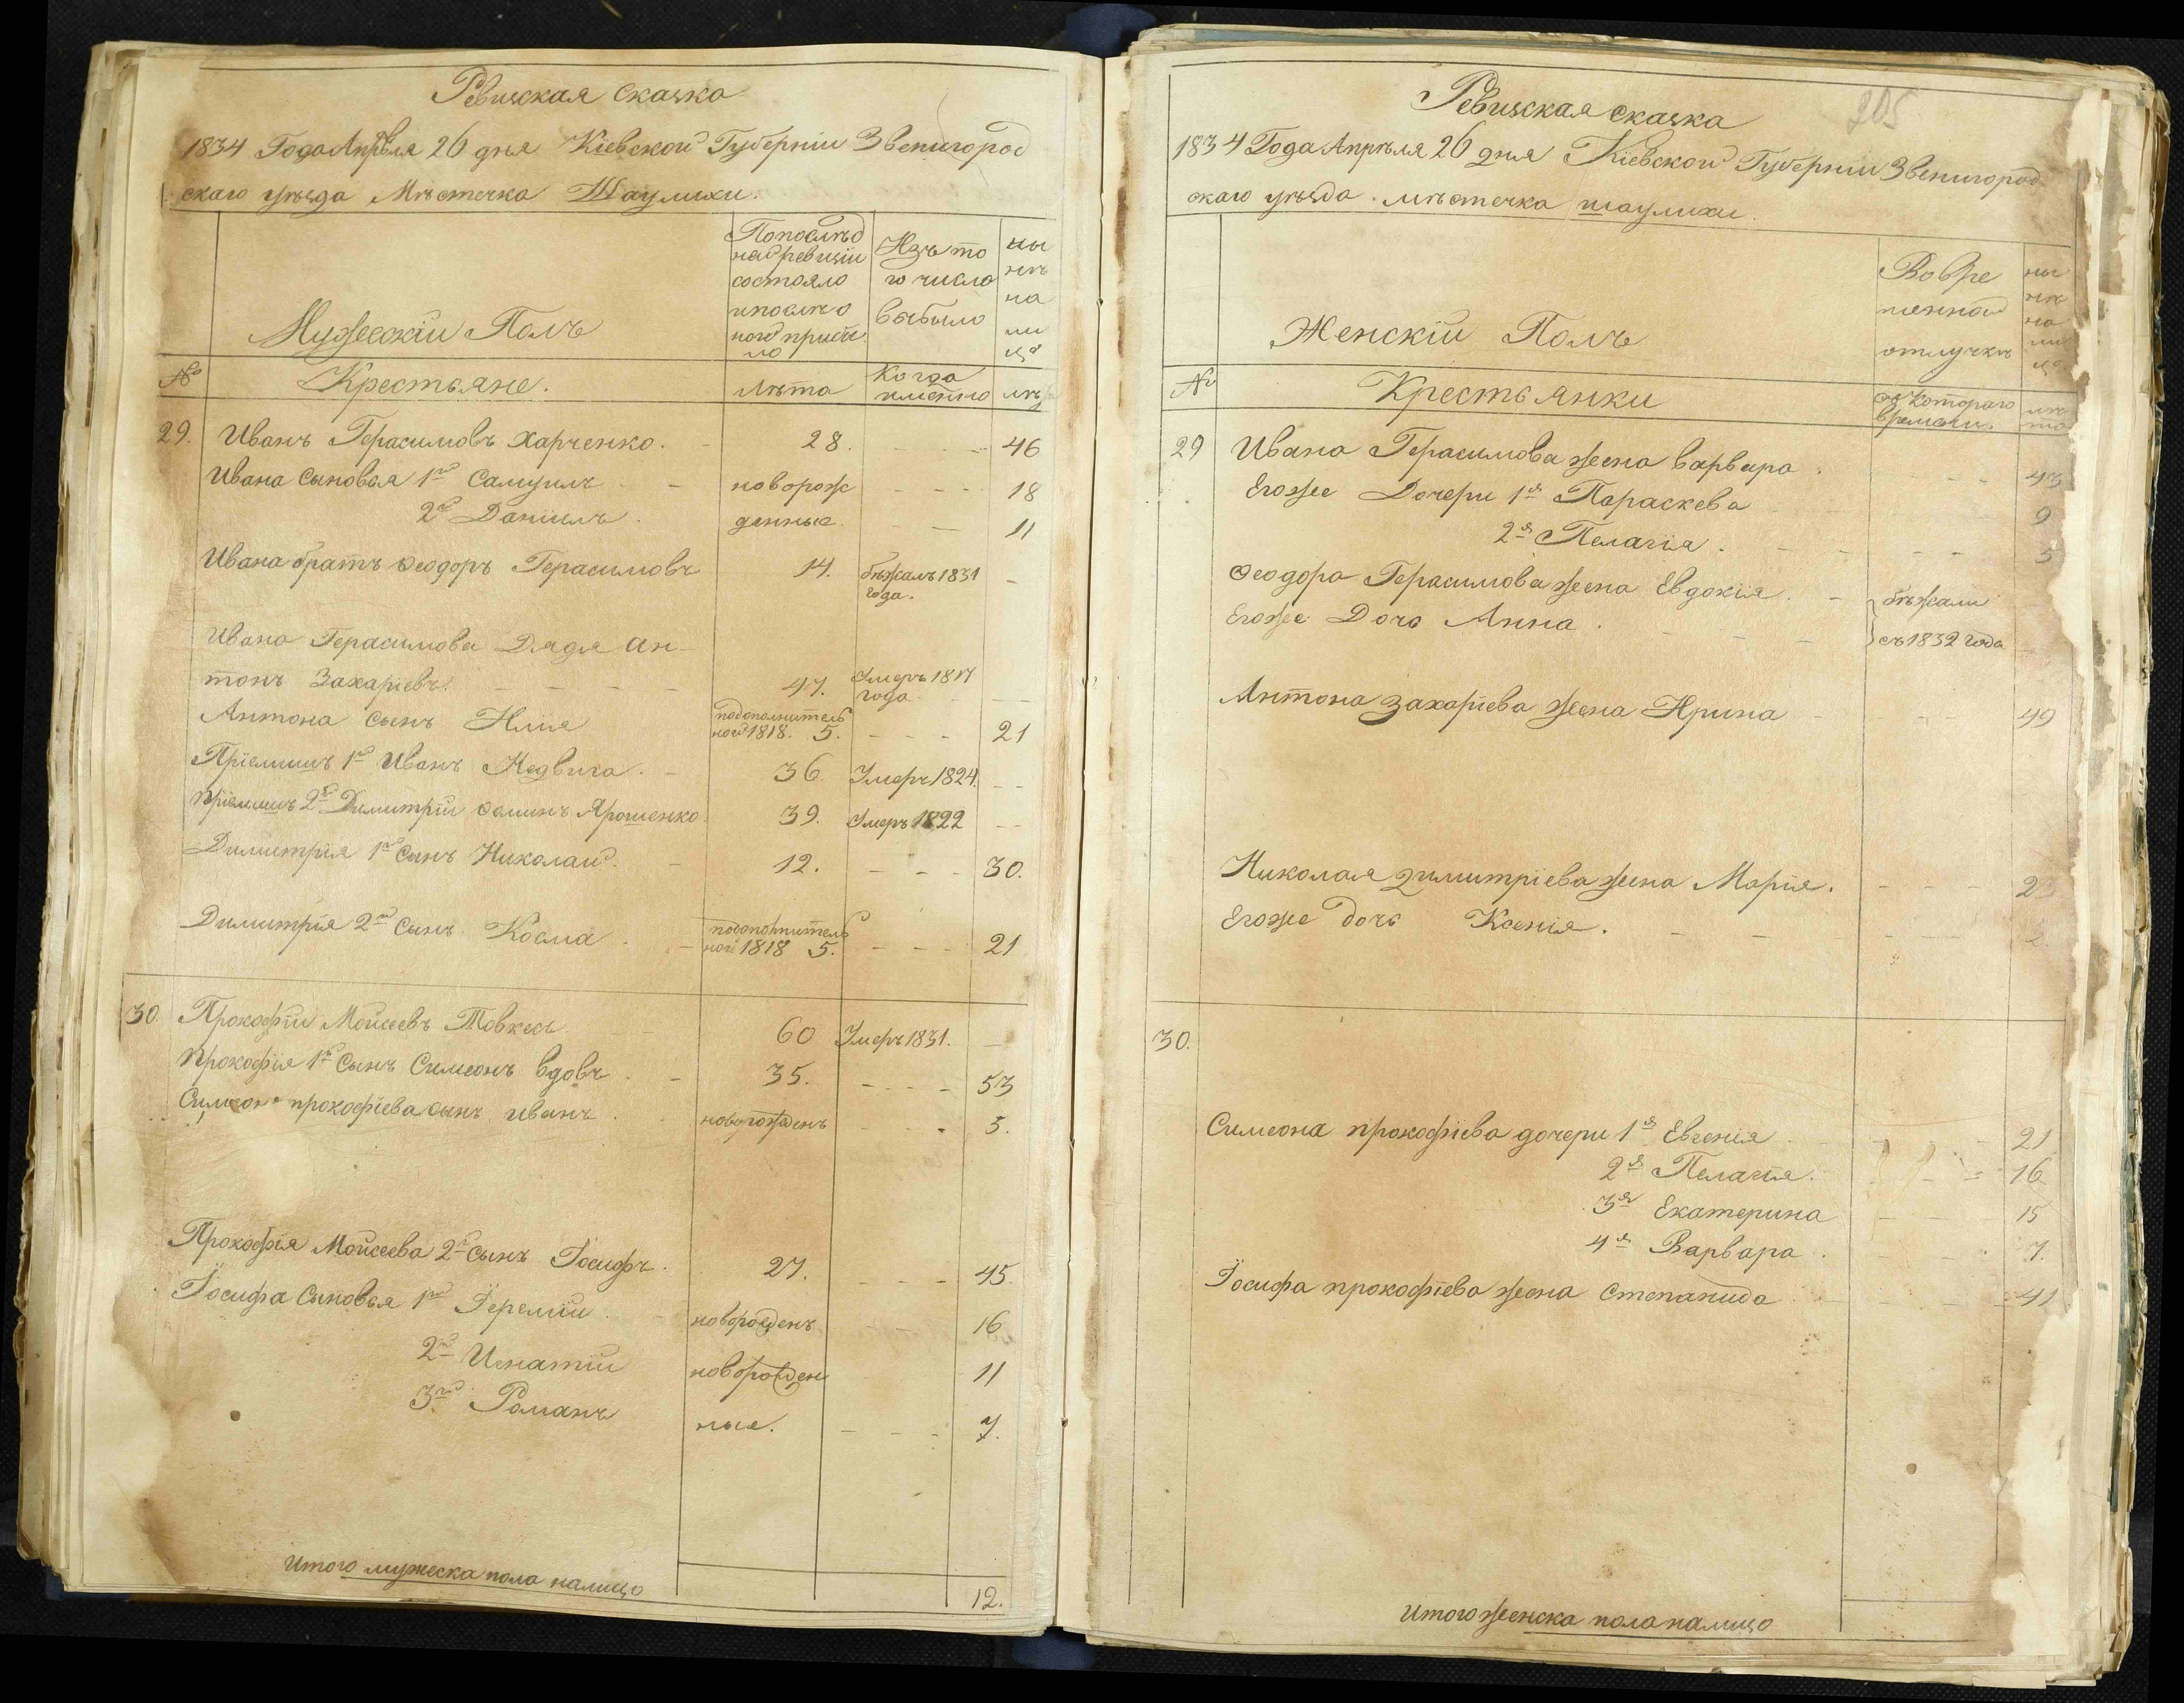 Ревизская сказка
1834 Года Апрѣля 26 дня Кіевской Губерніи Звенигород
скаго уѣзда Мѣстечка Шаулихи.
Мужескій Полъ
Попослѣд
ней ревизіи
состояло
ипослѣ о
ной прибы
ло
Изъ то
го числа
выбыло
ны
нѣ
на
ли
цо
№
Крестьяне.
Лѣта
Когда
именно
лѣ
29. Иванъ Герасимовъ Харченко. 28. 46
Ивана сыновья 1й Самуилъ новорож 18
2й Даніилъ. денные. 11
Ивана братъ Ѳеодоръ Герасимовъ 14. бѣжалъ 1831
года.
Ивана Герасимова Дядя Ан-
тонъ Захаріевъ. 47. Умеръ 18
года
Антона сынъ Илія подополнитель
ной 1818. 5. 21
Пріемышъ 1й Иванъ Недвига. 36. Умеръ 1824.
Пріемышъ 2й Димитрій Ѳоминъ Ярошенко. 39. Умеръ 1822
Димитрія 1й сынъ Николай. 12. 30.
Димитрія 2й сынъ Косма. подополнитель
ной 1818 5. 21
30. Прокофій Моисеевъ Товкесъ. 60 Умеръ 1831.
Прокофія 1й Сынъ Симеонъ вдовъ 35. 53
Симеона прокофіева сынъ иванъ новорожденъ 5.
Прокофія Моисеева 2й сынъ Іосифъ. 27. 45.
Іосифа Сыновья 1й Іеремій новорожденъ 16
2й Игнатій новорожден 11
3й Романъ ные. 7.
Итого мужеска пола налицо 12.
205
Ревизская сказка
1834 Года Апрѣля 26 дня Кіевской Губерніи Звенигород
скаго уѣзда мѣстечка шаулихи.
Женскій Полъ
Вовре
менной
отлучкѣ
ны
нѣ
на
ли
цо
№
Крестьянки
съ котораго
времени.
лѣ
та
29 Ивана Герасимова жена варвара. 43
Егоже Дочери 1я Параскева 9
2я Пелагія. 5
Ѳеодора Герасимова жена Евдокія. бѣжали
Егоже Дочь Анна. съ 1832 года
Антона захаріева жена Ирина 49
Николая димитріева жена Марія.
Егоже дочь Ксенія. 2.
30.
Симеона прокофіева дочери 1я Евгенія 21
2я Пелагія. 16
3я Екатерина 15
4я Варвара. 7.
Іосифа прокофіева жена Степанида 41
Итого женска пола налицо